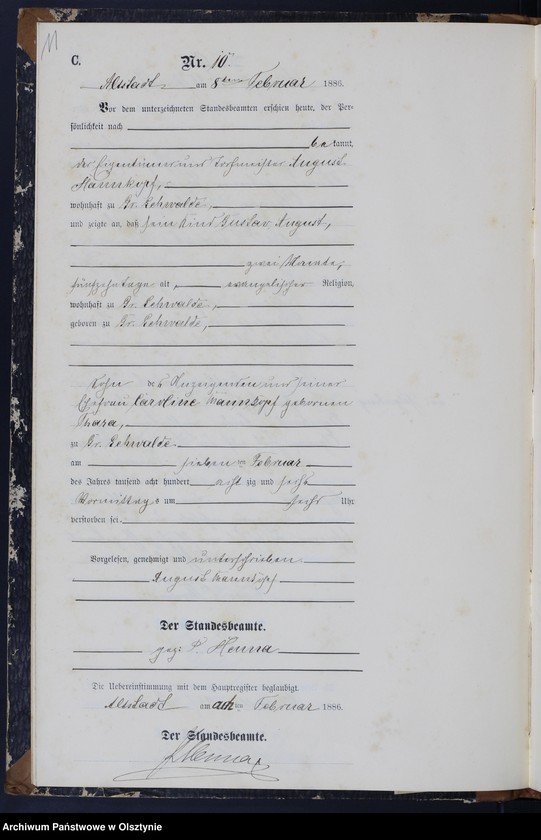 11
C.
Nr. 10.
Altstadt am 8ten Februar 1886.
Vor dem unterzeichneten Standesbeamten erschien heute, der Per-
sönlichkeit nach
be kannt,
der Eigentümer und August
wohnhaft zu Gr. Sehwalde,
und zeigte an, daß sein Kind Gustav August,
zwei Monate,
fünfzehn Tage alt, evangelischer Religion,
wohnhaft zu Gr. Sehwalde,
geboren zu Gr. Sehwalde,
Sohn des Anzeigenden und seiner
Ehefrau Caroline geborenen
zu Gr. Sehwalde
am sieben ten Februar
des Jahres tausend acht hundert acht zig und sechs
Vormittags um sechs Uhr
verstorben sei.
Vorgelesen, genehmigt und unterschrieben.
August
Der Standesbeamte.
gez: Henna
Die Uebereinstimmung mit dem Hauptregister beglaubigt.
Altstadt am acht ten Februar 1886.
Der Standesbeamte.
Henna
Archiwum Państwowe w Olsztynie